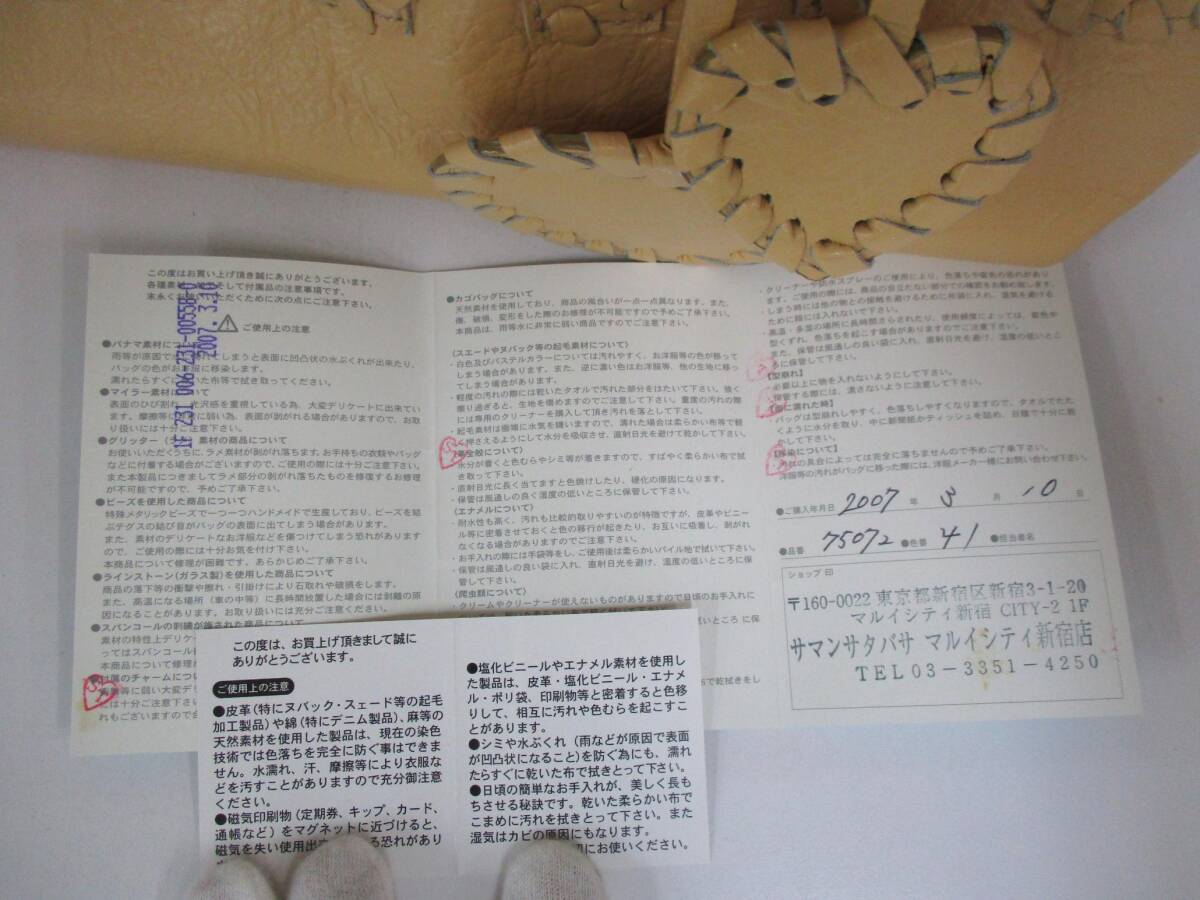 この度はお買い上げ頂き誠にありがとうございます。
各種素材 そして付属品の注意事項です。
末永くお ただくために次の点にご注意下さい。
ご使用上の注意
●パナマ素材に
雨等が原因で しまうと表面に凹凸状の水ぶくれが出来たり、
バッグの色がお に移染します。
濡れたらすぐ いた布等で拭き取ってください。
●マイラー素材 いて
表面のひび割れ 光沢感を重視している為、大変デリケートに出来てい
ます。摩擦等 に弱い為、表面が剥がれる場合がありますので、お取
り扱いには十分 注意下さい。
●グリッター(ラ 素材の商品について
お使いいただくうちに、ラメ素材が剥がれ落ちます。お手持ちの衣類やバッグ
などに付着する場合がございますので、ご使用の際には十分ご注意下さい。
また本製品につきましてラメ部分の剥がれ落ちたものを修復するお修理
が不可能ですので、予めご了承下さい。
●ビーズを使用した商品について
特殊メタリックビーズで一つ一つハンドメイドで生産しており、ビーズを結
ぶテグスの結び目がバッグの表面に出てしまう場合があります。
また、素材のデリケートなお洋服などを傷つけてしまう恐れがありますの
で、ご使用の際には十分お気を付け下さい。
本商品について修理が困難です。あらかじめご了承下さい。
●ラインストーン(ガラス製)を使用した商品について
商品の落下等の衝撃や擦れ・引掛けにより石取れや破損をします。
また、高温になる場所(車の中等)に長時間放置した場合には剥離の原
因になることがあります。お取り扱いには充分ご注意ください。
●スパンコールの刺繍が施された商品について
素材の特性上デリケ
ってはスパンコール
本商品について修理
●付属のチャームについ
に弱い大変デリ
は十分ご注意下さ
れもございますので
1F 7231 006-231-00558-0
2007. 3.10
●カゴバッグについて
天然素材を使用しており、商品の風合いが一点一点異なります。また、
傷、破損、変形をした際のお修理が不可能ですので予めご了承下さい。
本商品は、雨等水に非常に弱い商品ですのでご注意下さい。
(スエードやヌバック等の起毛素材について)
・白色及びパステルカラーについては汚れやすく、お洋服等の色が移って
しまう場合があります。また、逆に濃い色はお洋服等、他の生地に移っ
てしまう場合があります。
・軽度の汚れの際には乾いたタオルで汚れた部分をはたいて下さい。強く
擦り過ぎると、生地を傷めますのでご注意して下さい。重度の汚れの際
には専用のクリーナーを購入して頂き汚れを落として下さい。
・起毛素材は極端に水気を嫌いますので、濡れた場合は柔らかい布等で軽
く押さえるようにして水分を吸収させ、直射日光を避けて乾かして下さい。
(革全般について)
・水分が着くと色むらやシミ等が着きますので、すばやく柔らかい布で拭
き取って下さい。
・直射日光に長く当てますと色焼けしたり、硬化の原因になります。
・保管は風通しの良く湿度の低いところに保管して下さい。
(エナメルについて)
・耐水性も高く、汚れも比較的取りやすいのが特徴ですが、皮革やビニー
ル等に密着させておくと色の移行が起きたり、お互いに吸着し、剥がれ
なくなる場合がありますのでご注意下さい。
・お手入れの際には手袋等をし、ご使用後は柔らかいパイル地で拭いて下さい。
・保管は風通しの良い袋に入れ、直射日光を避け、湿度の低いところに保
管して下さい。
(爬虫類について)
・クリームやクリーナーが使えないものがありますので日頃のお手入れに
いところ に保
で乾拭きをし
・クリーナーや防水スプレーのご使用により、色落ちや変色の恐れがあり
ます。ご使用の際には、商品の目立たない部分での確認をお勧め致します。
・しまう時には他の物との接触を避けるために布袋に入れ、湿気を避ける
ために箱には入れないで下さい。
・高温・多湿の場所に長時間さらされたり、使用頻度によっては、着色や
型くずれ、色落ちを起こす場合がありますのでご注意下さい。
また、保管は風通しの良い袋に入れ、直射日光を避け、湿度の低いとこ
ろに保管して下さい。
【型崩れ】
・必要以上に物を入れないようにして下さい。
・保管する際には、潰さないように注意して下さい。
【雨に濡れた時】
・バッグは型崩れしやすく、色落ちしやすくなりますので、タオルでたた
くように水分を取り、中に新聞紙かティッシュを詰め、日陰で十分に乾
かして下さい。
【汚染について】
・汚れの具合によっては完全に落ちませんので予めご了承下さい。
・洋服等の汚れがバッグに移った際には、洋服メーカー様にお問い合わせ下さい。
●ご購入年月日 2007 年 3 月 10 日
●品番 75072 ●色番 41 ●担当者名
ショップ印
〒160-0022 東京都新宿区新宿3-1-20
マルイシティ新宿 CITY-2 1F
サマンサタバサ マルイシティ新宿店
TEL 03-3351-4250
この度は、お買上げ頂きまして誠に
ありがとうございます。
ご使用上の注意
●皮革(特にヌバック・スェード等の起毛
加工製品)や綿(特にデニム製品)、麻等の
天然素材を使用した製品は、現在の染色
技術では色落ちを完全に防ぐ事はできま
せん。水濡れ、汗、摩擦等により衣服な
どを汚すことがありますので充分御注意
ください。
●磁気印刷物(定期券、キップ、カード、
通帳など)をマグネットに近づけると、
磁気を失い使用出 る恐れがあり
●塩化ビニールやエナメル素材を使用し
た製品は、皮革・塩化ビニール・エナメ
ル・ポリ袋、印刷物等と密着すると色移
りして、相互に汚れや色むらを起こすこ
とがあります。
●シミや水ぶくれ(雨などが原因で表面
が凹凸状になること)を防ぐ為にも、濡れ
たらすぐに乾いた布で拭きとって下さい。
●日頃の簡単なお手入れが、美しく長も
ちさせる秘訣です。乾いた柔らかい布で
こまめに汚れを拭きとって下さい。また
湿気はカビの原因にもなります。
切にお使いください。